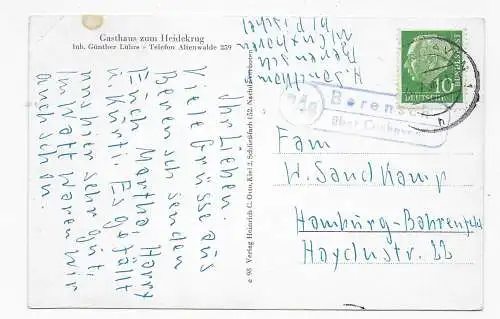 Gasthaus zum Heidekrug
Inh. Günther Lührs - Telefon Altenwalde 259
Ihr Lieben.
Viele Grüsse aus
Berensch senden
Erich, Martha, Harry
u. Kurti. Es gefällt
uns hier sehr gut.
Im Watt waren wir
auch schon.
c 98 Verlag Heinrich C. Otto, Kiel 2, Schließfach 152. Nachdruck verboten
H. Sandkamp
Berensch
b/
24a
Berensch
über Cuxhaven
DEUTSCHE BUNDESPOST
10
Fam
W. Sandkamp
Hamburg-Bahrenfeld
Haydnstr. 22